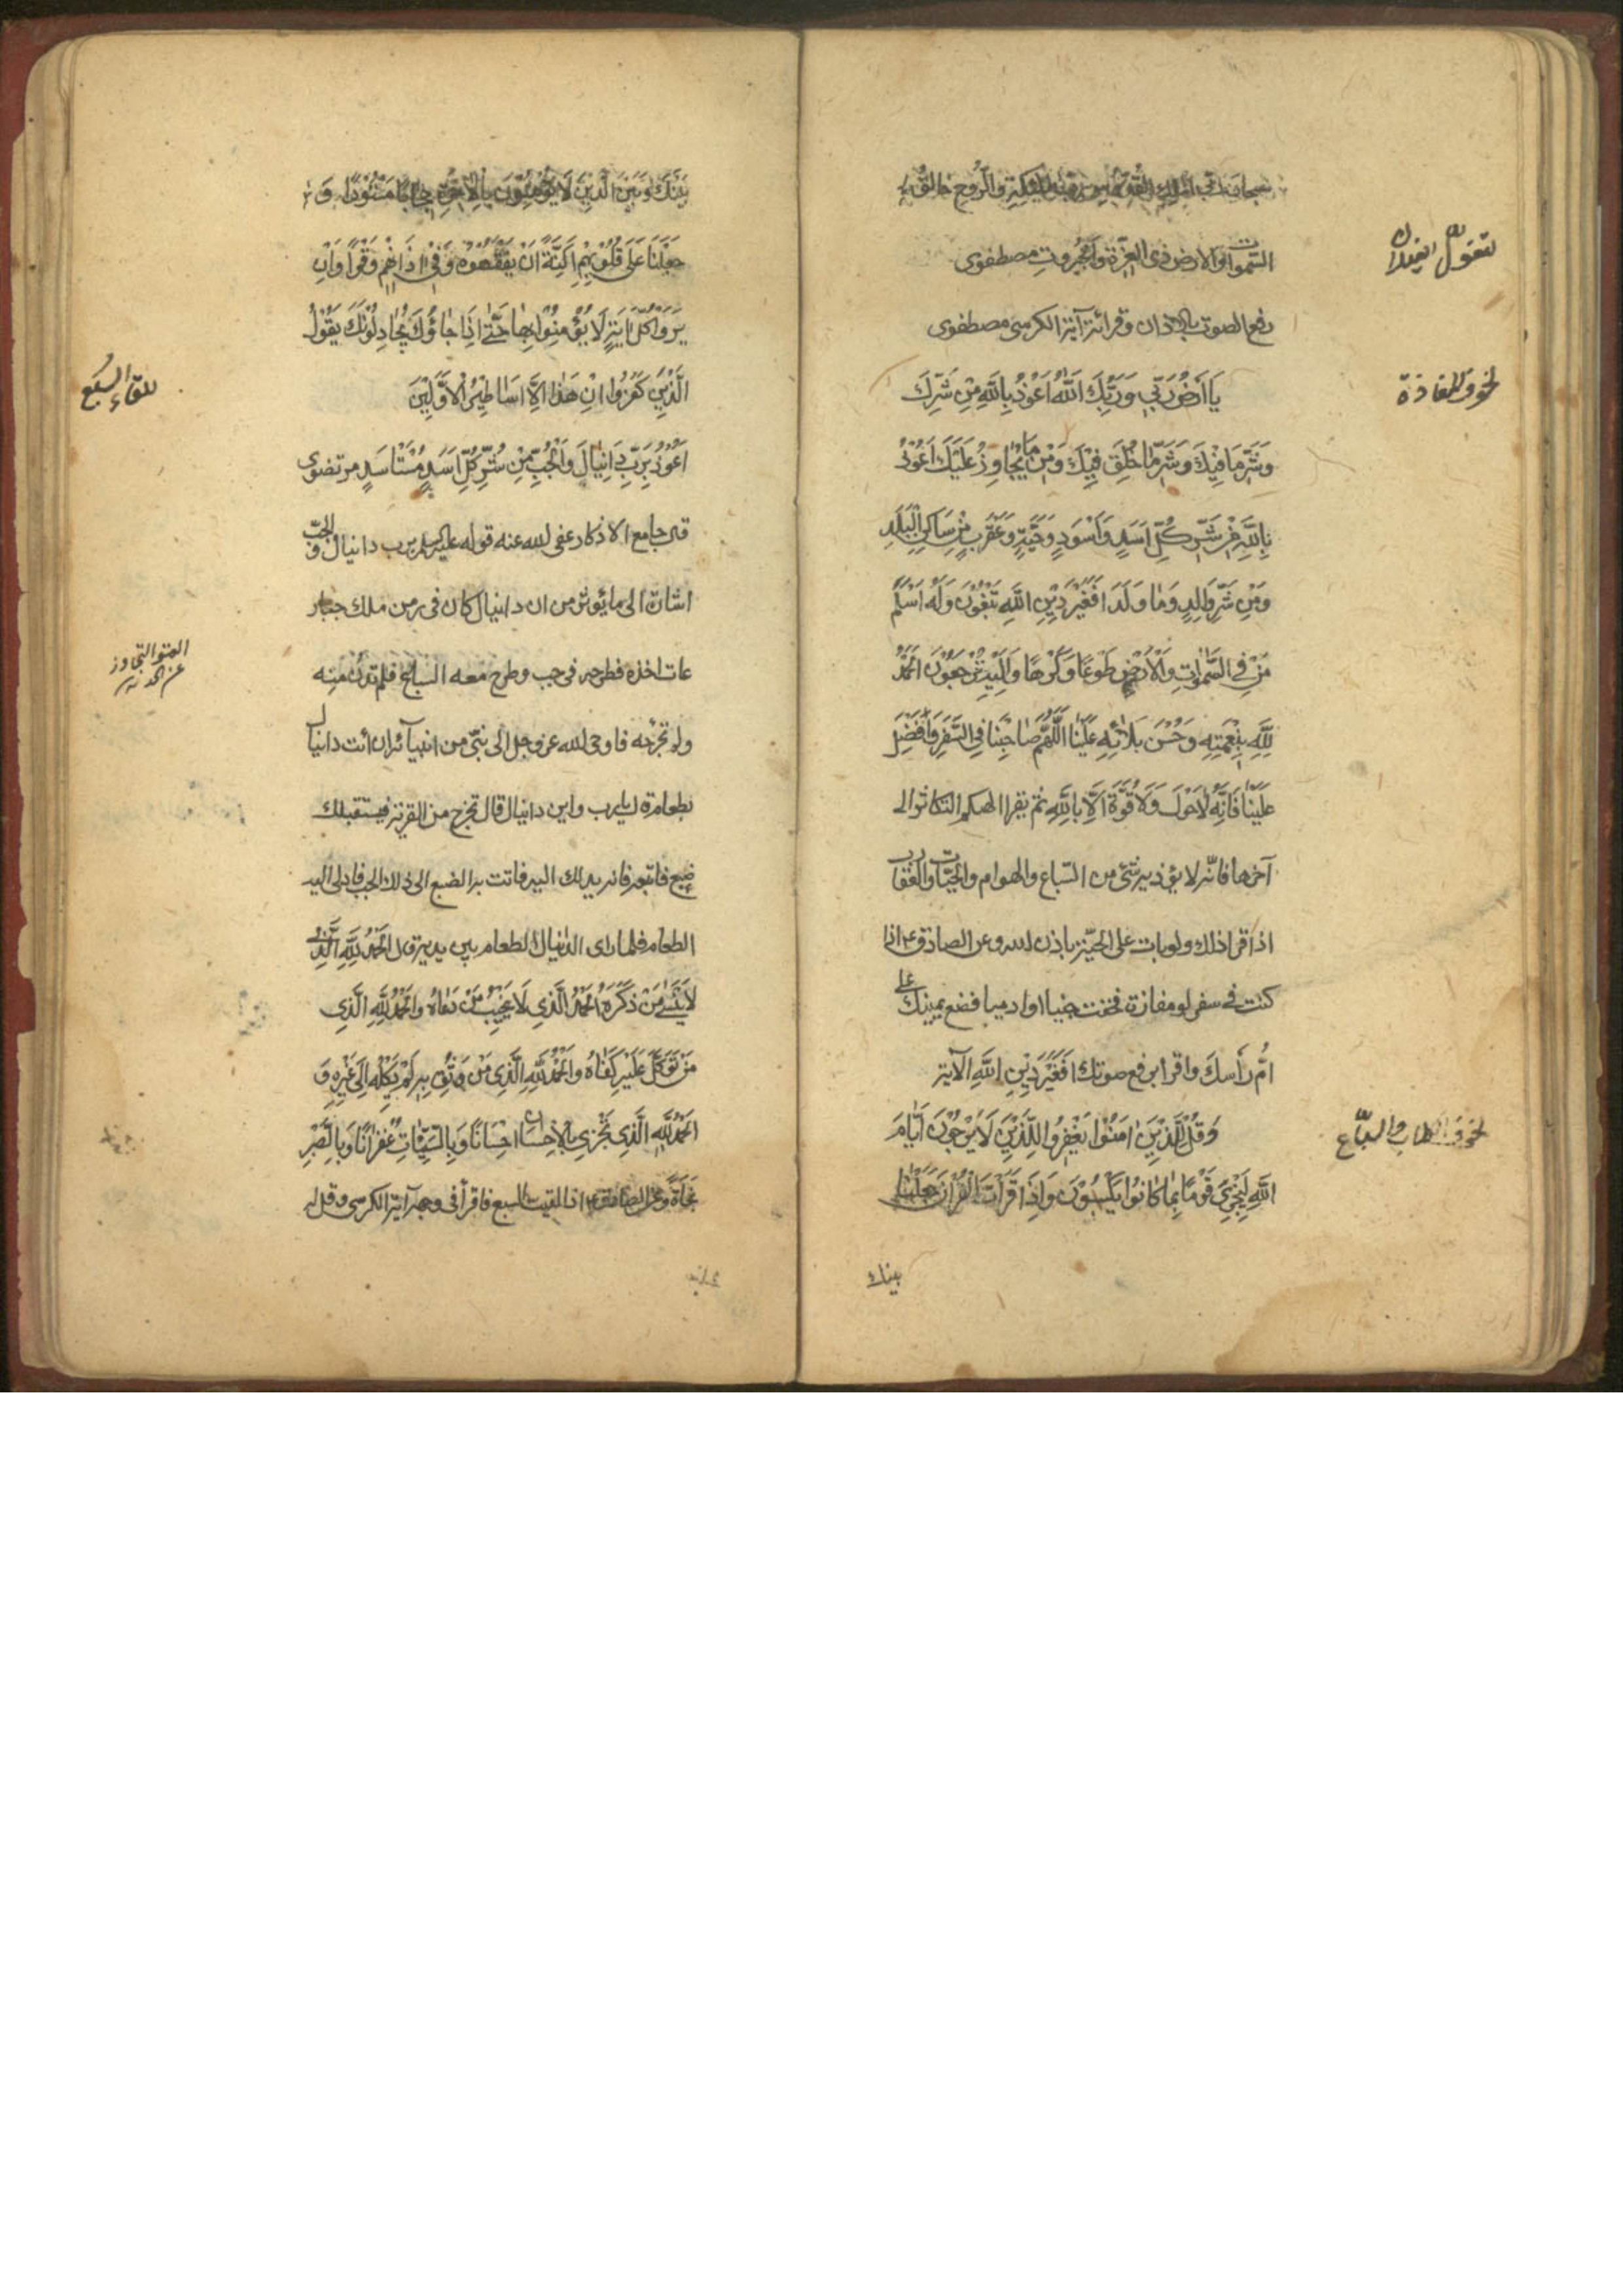 سبحان الملك القدوس رب الملائكة والروح خالق
السموات والارض ذى العزة والجبروت مصطفوى
لتغول الغيلان
رفع الصوت بالاذان وقرائة آية الكرسى مصطفوى
لخوف المفازة
يَا أَرْضُ رَبِّي وَرَبُّكِ اللَّهُ اَعُوْذُ بِاللَّهِ مِنْ شَرِّكِ
وَشَرِّ مَا فِيْكِ وَشَرِّ مَا خُلِقَ فِيْكِ وَمِنْ مَا يُحَاوِذُ عَلَيْكِ اَعُوْذُ
بِاللَّهِ مِنْ شَرِّ كُلِّ اَسَدٍ وَاَسْوَدٍ وَحَيَّةٍ وَعَقْرَبٍ مِنْ سَاكِنِ الْبَلَدِ
وَمِنْ شَرِّ وَالِدٍ وَمٰا وَلَدَ اَفَغَيْرَ دِيْنِ اللَّهِ تَبْغُوْنَ وَلَهُ اَسْلَمَ
مَنْ فِي السَّمٰوَاتِ وَالْاَرْضِ طَوْعًا وَكَرْهًا وَاِلَيْهِ تُرْجَعُوْنَ اَلْحَمْدُ
لِلَّهِ بِنِعْمَتِهِ وَحُسْنِ بَلَائِهِ عَلَيْنَا اَللَّهُمَّ صَاحِبْنَا فِي السَّفَرِ وَاَفْضِلْ
عَلَيْنَا فَاِنَّهُ لَا حَوْلَ وَلَا قُوَّةَ اِلَّا بِاللَّهِ ثم يقرا الهيكم التكاثر الى
آخرها فانّه لا يؤذيه شئ من السّباع والهوام والحيّات والعقارب
اذا قرا ذلك ولو بات على الحيّة باذن الله وعن الصادق ع اذا
كنت فى سفر او مفازة فخفت جنيا او ادميا فضع يمينك على
اُمّ رَأسكَ واقرأ برفع صوتك اَفَغَيْرَ دِيْنِ اللَّهِ الآية
لخوف الكلاب والسباع
وَقُلْ لِلَّذِيْنَ اٰمَنُوْا يَغْفِرُوْا لِلَّذِيْنَ لَا يَرْجُوْنَ اَيَّامَ
اللَّهِ لِيَجْزِيَ قَوْمًا بِمَا كَانُوْا يَكْسِبُوْنَ وَاِذَا قَرَأْتَ الْقُرْاٰنَ جَعَلْنَا
بينك
بَيْنَكَ وَبَيْنَ الَّذِيْنَ لَا يُؤْمِنُوْنَ بِالْاٰخِرَةِ حِجَابًا مَسْتُوْرًا وَ
جَعَلْنَا عَلَى قُلُوْبِهِمْ اَكِنَّةً اَنْ يَفْقَهُوْهُ وَفِى اٰذَانِهِمْ وَقْرًا وَاِنْ
يَرَوْا كُلَّ اٰيَةٍ لَا يُؤْمِنُوْا بِهَا حَتّٰى اِذَا جَاؤُكَ يُجَادِلُوْنَكَ يَقُوْلُ
الَّذِيْنَ كَفَرُوْا اِنْ هَذٰا اِلَّا اَسَاطِيْرُ الْاَوَّلِيْنَ
للقاء السبع
اَعُوْذُ بِرَبِّ دَانِيَالَ وَالْجُبِّ مِنْ شَرِّ كُلِّ اَسَدٍ مُسْتَاسِدٍ مرتضوى
قال جامع الاذكار عفى الله عنه قوله عليه السلام برب دانيال والجبّ
اشارة الى ما يؤثر من ان دانيال كان فى زمن ملك جبار
عات اخذه فطرحه فى جب وطرح معه السباع فلم تدن منه
العتو التجاوز عن الحد
ولم تجرحه فاوحى الله عز وجل الى نبىّ من انبيائه ان ائت دانيال
بطعام قال يا رب واين دانيال قال تخرج من القرية فيستقبلك
ضبع فاتبعه فانه يدلك اليه فاتت به الضبع الى ذلك الجب فادلى اليه
الطعام فلما راى الدانيال الطعام بين يديه قال اَلْحَمْدُ لِلَّهِ الَّذِيْ
لَا يَنْسٰى مَنْ ذَكَرَهُ اَلْحَمْدُ الَّذِي لَا يُخَيِّبُ مَنْ دَعَاهُ وَالْحَمْدُ لِلَّهِ الَّذِي
مَنْ تَوَكَّلَ عَلَيْهِ كَفَاهُ وَالْحَمْدُ لِلَّهِ الَّذِي مَنْ وَثِقَ بِهِ لَمْ يَكِلْهُ اِلَى غَيْرِهِ وَ
اَلْحَمْدُ لِلَّهِ الَّذِي يَجْزِي بِالْاِحْسَانِ اِحْسَانًا وَبِالسَّيِّئَاتِ غُفْرَانًا وَبِالصَّبْرِ
نَجَاةً وعن الصادق ع اذا لقيت السبع فاقرأ فى وجهه آية الكرسى وقل له